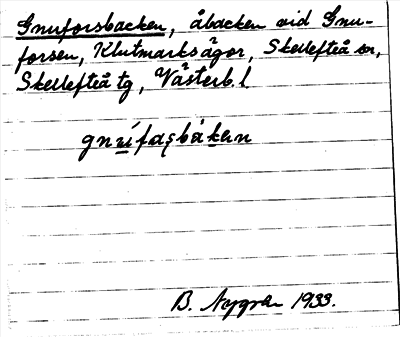 Gnuforsbacken, åbacken vid Gnu-
forsen, Klutmarksågor, Skellefteå sn,
Skellefteå tg, Västerb. l.
gnúfasbàkan
B. Nygren 1933.